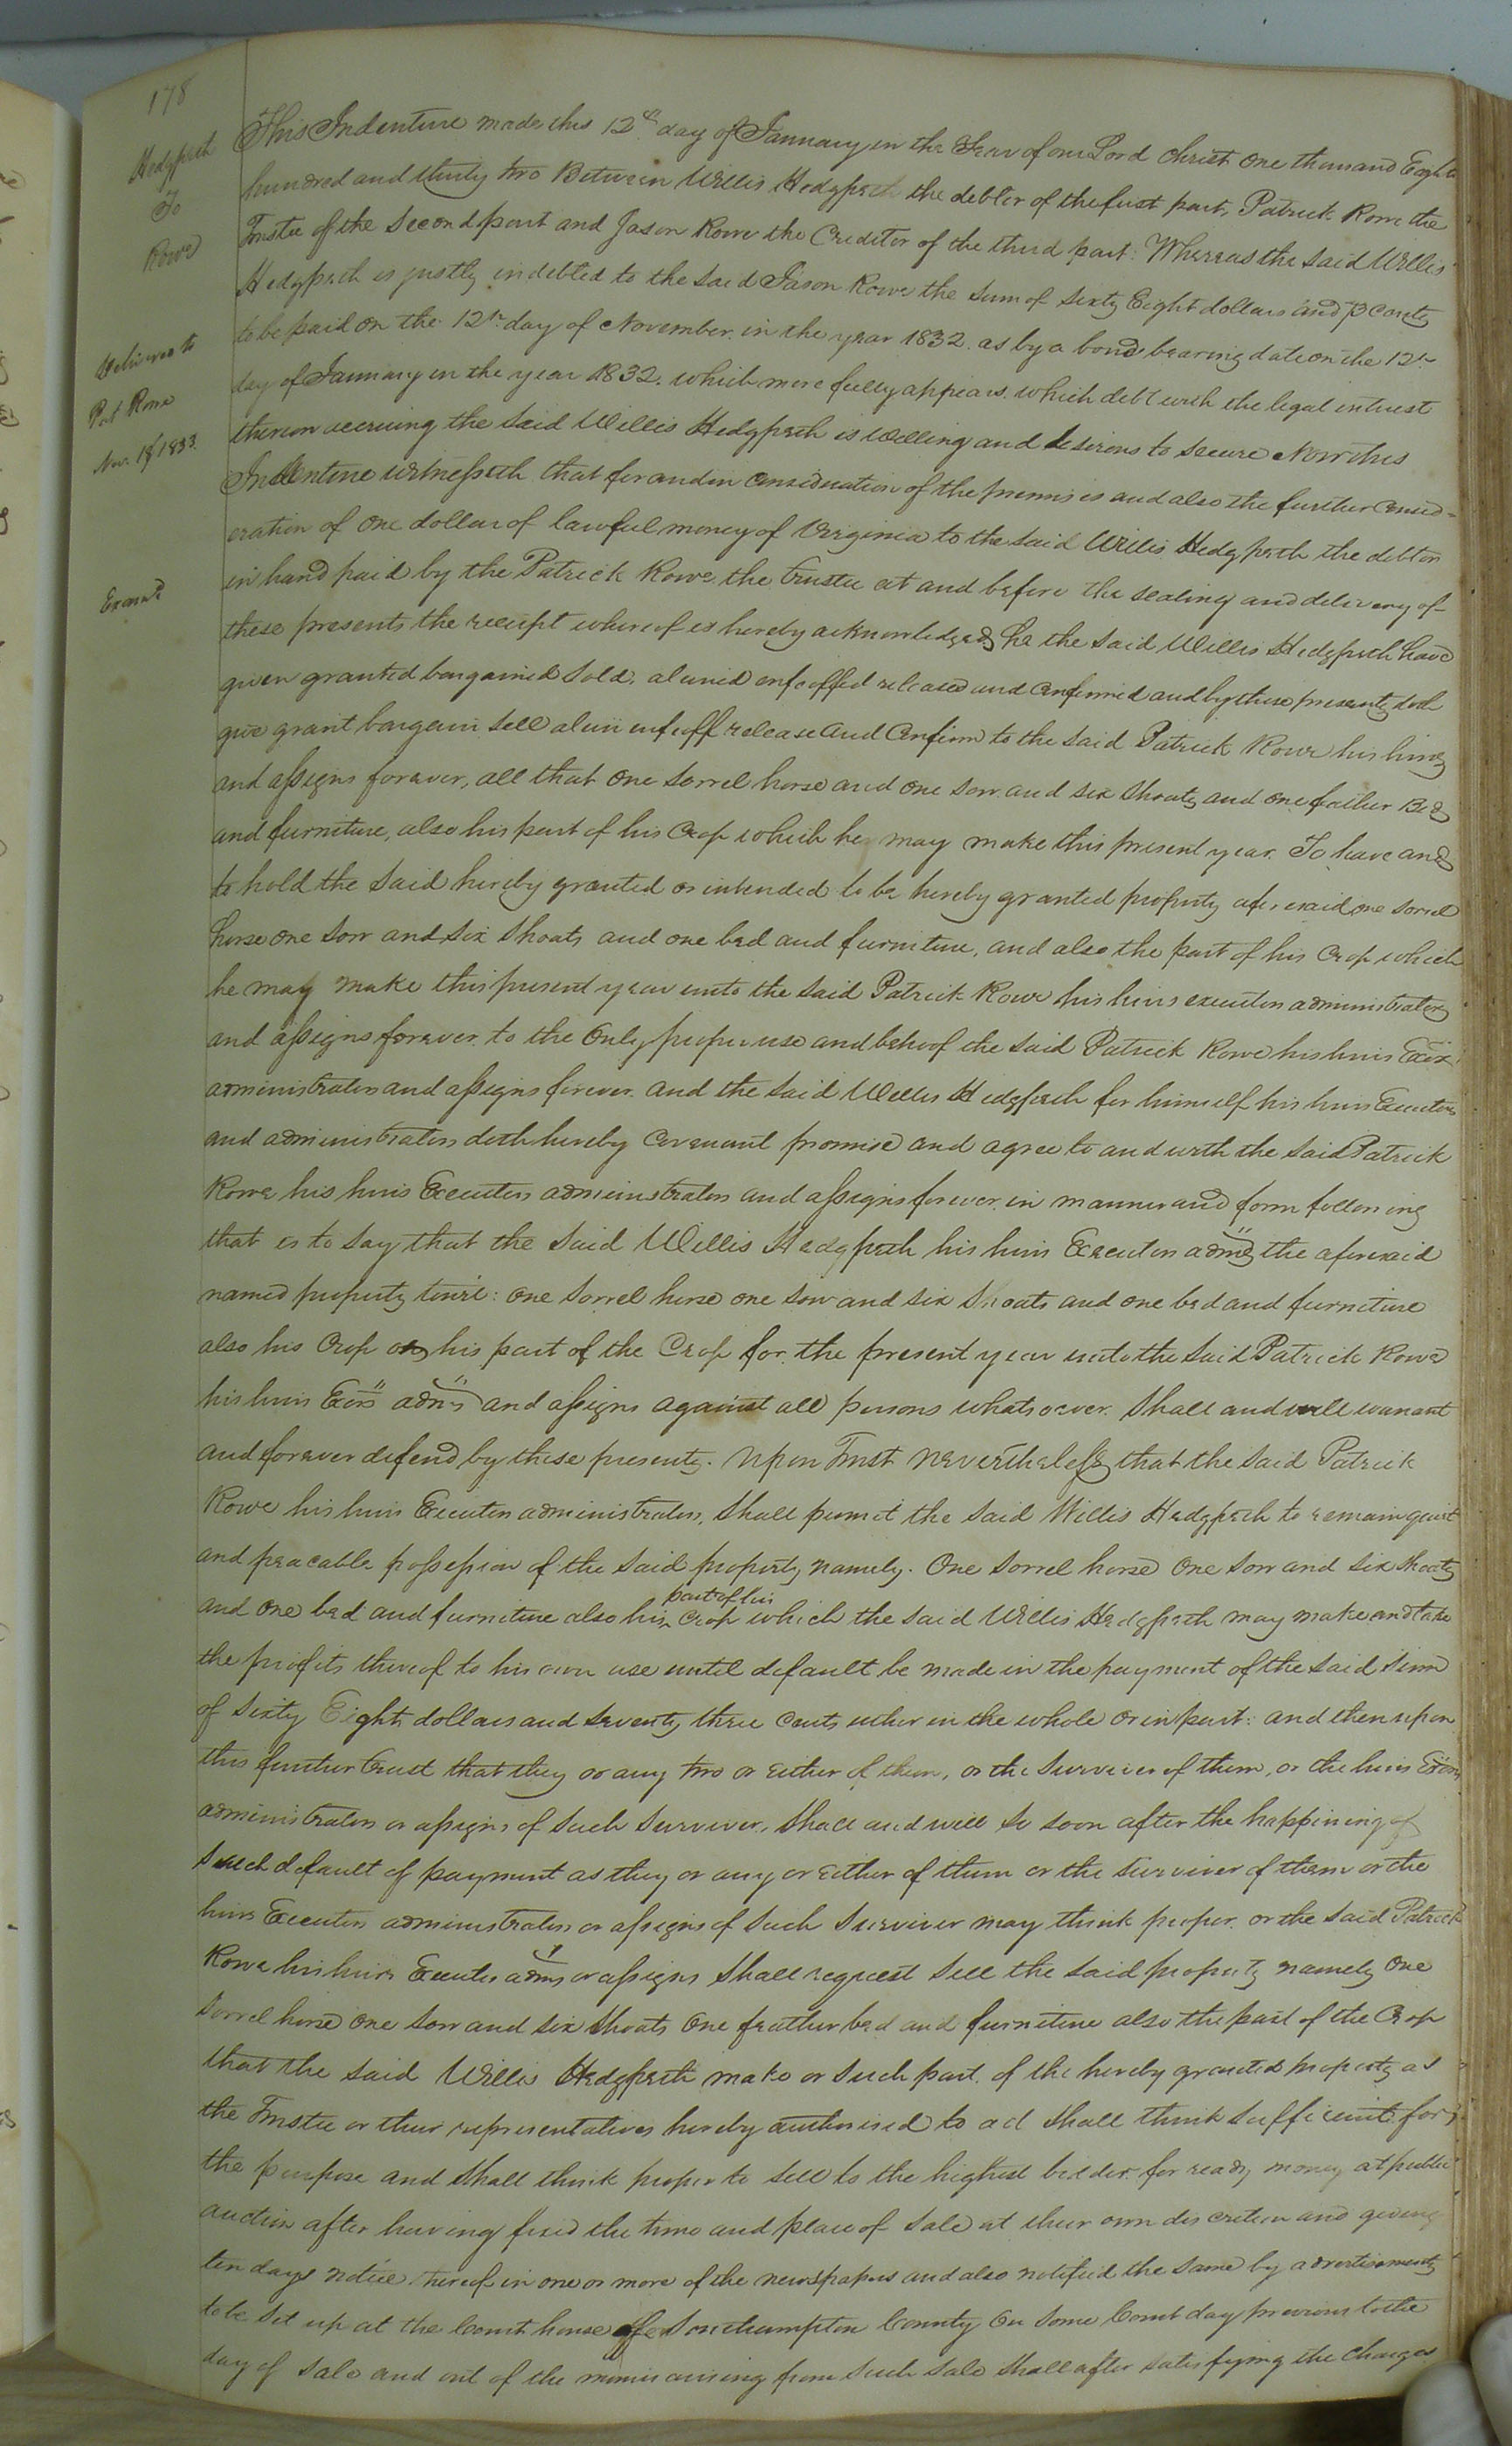 178
Hedgpeth
To
Rowe
Delivered to
Pat Rowe
Nov. 18 1833
Exam'd
This Indenture made this 12th day of January in the Year of our Lord Christ One thousand Eight
hundred and thirty two Between Willis Hedgpeth the debtor of the first part, Patrick Rowe the
Trustee of the Second part and Jason Rowe the Creditor of the third part: Whereas the said Willis
Hedgpeth is justly indebted to the said Jason Rowe the sum of Sixty Eight dollars and 73 Cents
to be paid on the 12th day of November in the year 1832 as by a bond bearing date on the 12th
day of January in the year 1832. which more fully appears. which debt with the legal interest
thereon accruing the said Willis Hedgpeth is willing and desirous to secure Now this
Indenture witnesseth that for and in Consideration of the premises and also the further Consid-
eration of One dollar of lawful money of Virginia to the said Willis Hedgpeth the debtor
in hand paid by the Patrick Rowe, the trustee at and before the sealing and delivery of
these presents the receipt whereof is hereby acknowledged he the said Willis Hedgpeth have
given granted bargained sold, aliened enfeoffed released and Confirmed and by these presents doth
give grant bargain sell alien enfeoff release and Confirm to the said Patrick Rowe his heirs
and assigns forever, all that One Sorrel horse and one sow and six shoats and one feather Bed
and furniture, also his part of his Crop which he may make this present year. To have and
to hold the said hereby granted or intended to be hereby granted property aforesaid one sorrel
horse one sow and six shoats and one bed and furniture, and also the part of his Crop which
he may make this present year unto the said Patrick Rowe his heirs executors administrators
and assigns forever to the Only proper use and behoof the said Patrick Rowe his heirs Exors
administrators and assigns forever. and the said Willis Hedgpeth for himself his heirs Executors
and administrators doth hereby Covenant promise and agree to and with the said Patrick
Rowe his heirs Executors administrators and assigns forever in manner and form following
that is to say that the said Willis Hedgpeth his heirs Executors adms the aforesaid
named property towit: one sorrel horse one sow and six shoats and one bed and furniture
also his Crop or his part of the Crop for the present year unto the said Patrick Rowe
his heirs Exors adms and assigns against all persons whatsoever. Shall and will warrant
and forever defend by these presents. Upon Trust nevertheless that the said Patrick
Rowe his heirs Executors administrators, shall permit the said Willis Hedgpeth to remain quiet
and peacable possession of the said property namely. One Sorrel horse One sow and six shoats
and one bed and furniture also his part of his Crop which the said Willis Hedgpeth may make and take
the profits thereof to his own use until default be made in the payment of the said sum
of Sixty Eight dollars and seventy three Cents either in the whole or in part: and then upon
this further trust that they or any two or either of them, or the survivor of them, or the heirs Exors
administrators or assigns of such survivor, shall and will so soon after the happining of
such default of payment as they or any or either of them or the survivor of them or the
heirs Executors administrators or assigns of such survivor may think proper or the said Patrick
Rowe his heirs Executors adms or assigns shall request sell the said property namely One
Sorrel horse One sow and six shoats One feather bed and furniture also the part of the Crop
that the said Willis Hedgpeth make or such part of the hereby granted property as
the Trustee or their representatives hereby authorised to act shall think sufficient for
the purpose and shall think proper to sell to the highest bidder for ready money at public
auction after having fixed the time and place of sale at their own discretion and giving
ten days notice thereof in one or more of the newspapers and also notified the same by advertisements
to be set up at the Court house of Southampton County On some Court day previous to the
day of sale and out of the monies arising from such sale shall after satisfying the charges